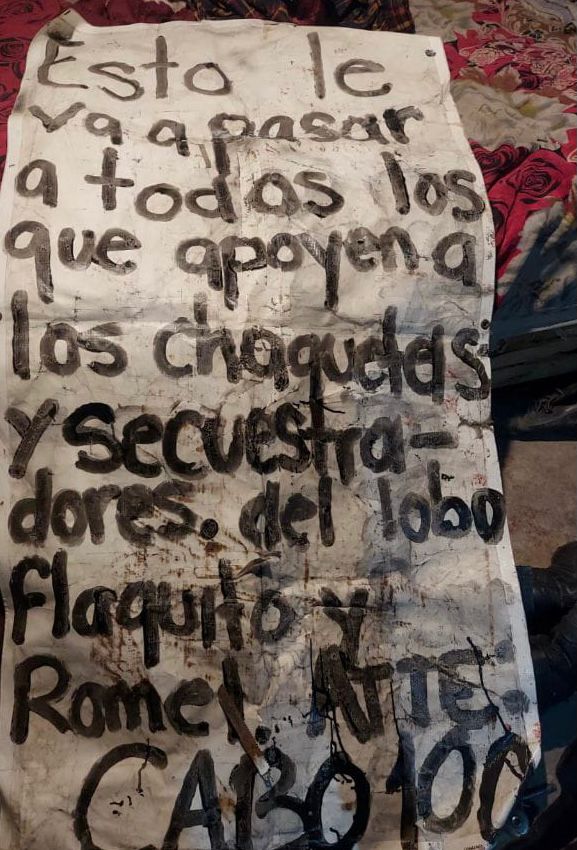 Esto le
va a pasar
a todos los
que apoyen a
los chaquetas
y secuestra-
dores. del lobo
flaquito y
Romel. ATTE:
CABO 100